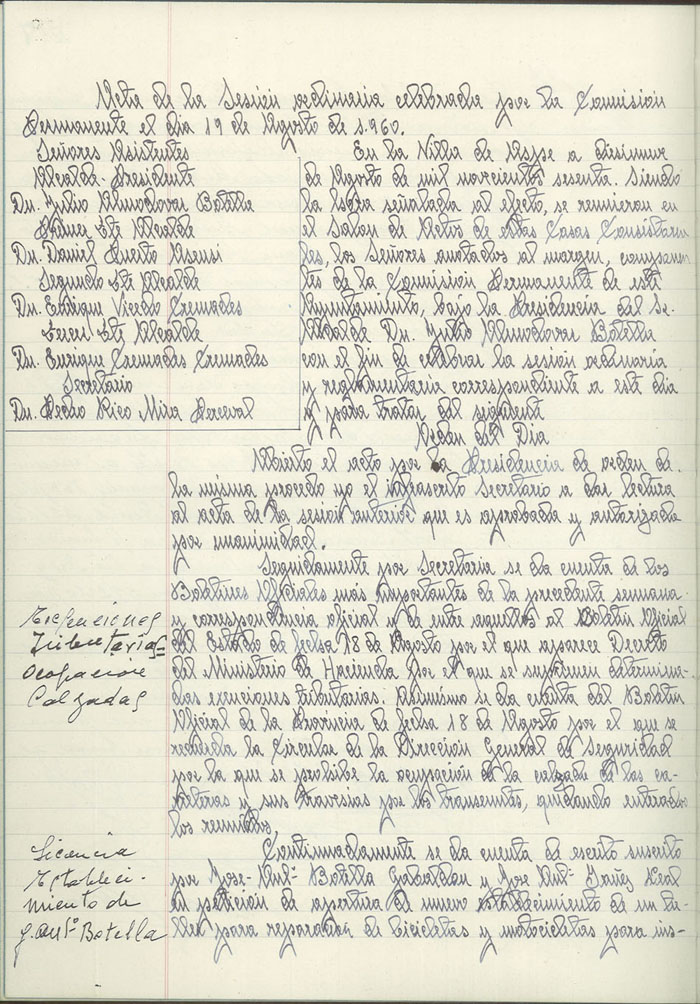 Acta de la Sesión ordinaria celebrada por la Comisión
Permanente el dia 19 de Agosto de 1.960.
Señores Asistentes
Alcalde-Presidente
Dn. Julio Almodovar Botella
Primer Tte Alcalde
Dn. Daniel Puerto Asensi
Segundo Tte Alcalde
Dn. Enrique Vicedo Cremades
Tercer Tte Alcalde
Dn. Enrique Cremades Cremades
Secretario
Dn. Pedro Rico Mira Perceval
En la Villa de Aspe a diecinueve
de Agosto de mil novecientos sesenta. Siendo
la hora señalada al efecto, se reunieron en
el Salon de Actos de estas Casas Consistoria
les, los Señores anotados al margen, componen
tes de la Comision Permanente de este
Ayuntamiento, bajo la Presidencia del Sr.
Alcalde Dn. Julio Almodovar Botella
con el fin de celebrar la sesión ordinaria
y reglamentaria correspondiente a este dia
y para tratar del siguiente
Orden del Dia
Abierto el acto por la Presidencia de orden de
la misma procedo yo el infrascrito Secretario a dar lectura
al acta de la sesion anterior que es aprobada y autorizada
por unanimidad.
Seguidamente por Secretaria se da cuenta de los
Boletines Oficiales más importantes de la precedente semana
y correspondencia oficial y de entre aquellos al Boletin Oficial
del Estado de fecha 18 de Agosto por el que aparece Decreto
del Ministerio de Hacienda por el que se suprimen determina-
das exenciones tributarias. Asimismo se da cuenta del Boletin
Oficial de la Provincia de fecha 18 de Agosto por el que se
la Circular de la Direccion General de Seguridad
por la que se prohibe la ocupación de la calzada de las ca-
rreteras y sus travesias por los transeuntes, quedando enterados
los reunidos.
Exenciones
Tributarias=
Ocupación
Calzadas
Continuadamente se da cuenta de escrito suscrito
por Jose-Antº Botella Gabaldon y Jose Antº Yañez Leal
en petición de apertura de nuevo establecimiento de un ta-
ller para reparación de bicicletas y motocicletas para ins-
Licencia
Estableci-
miento de
J. Antº Botella